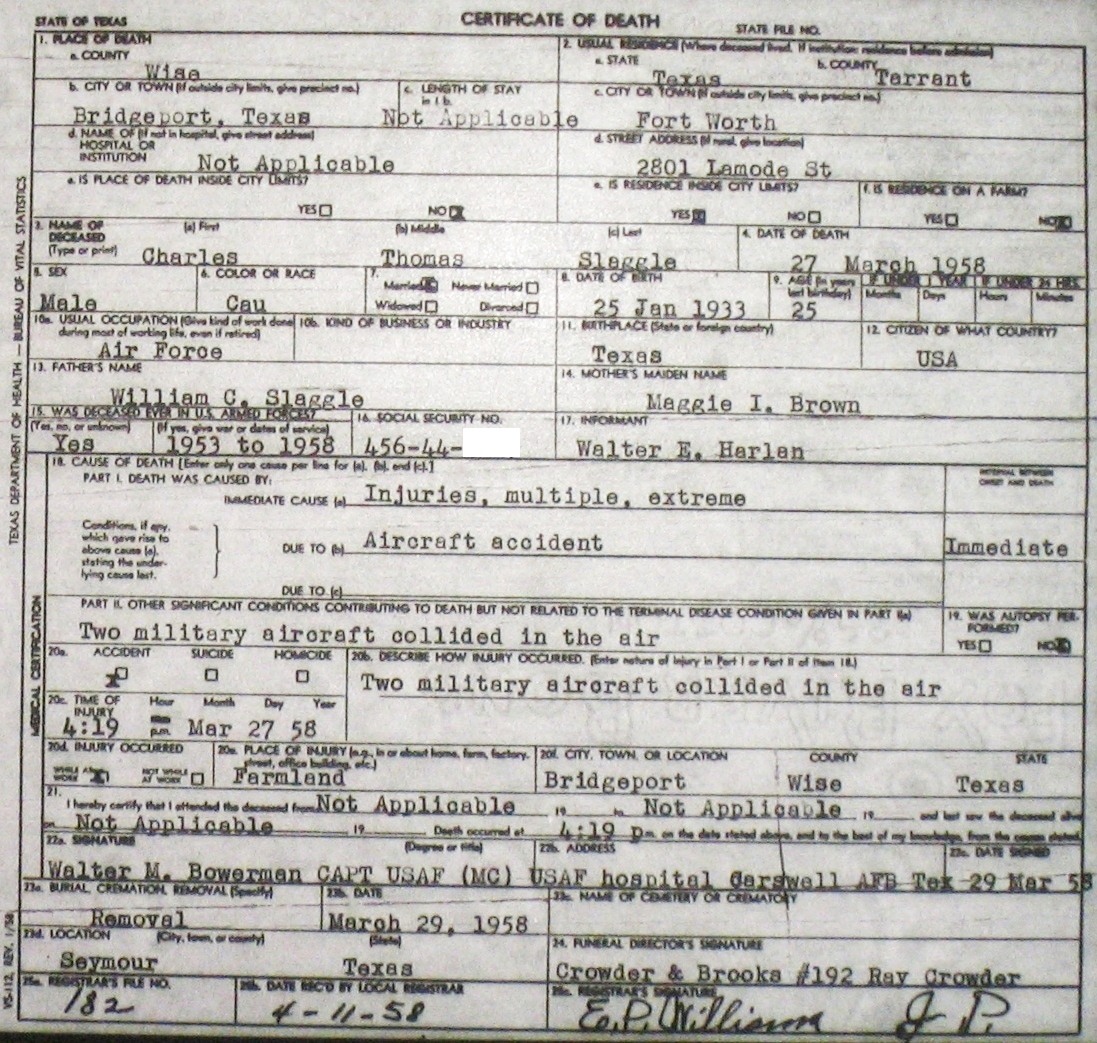 STATE OF TEXAS
CERTIFICATE OF DEATH
STATE FILE NO.
1. PLACE OF DEATH
a. COUNTY
Wise
2. USUAL RESIDENCE (Where deceased lived. If institution: residence before admission)
a. STATE
Texas
b. COUNTY
Tarrant
b. CITY OR TOWN (If outside city limits, give precinct no.)
Bridgeport, Texas
c. LENGTH OF STAY
in 1 b.
Not Applicable
c. CITY OR TOWN (If outside city limits, give precinct no.)
Fort Worth
d. NAME OF (If not in hospital, give street address)
HOSPITAL OR
INSTITUTION
Not Applicable
d. STREET ADDRESS (If rural, give location)
2801 Lamode St
e. IS PLACE OF DEATH INSIDE CITY LIMITS?
YES NO
e. IS RESIDENCE INSIDE CITY LIMITS?
YES NO
f. IS RESIDENCE ON A FARM?
YES NO
3. NAME OF
DECEASED
(Type or print)
(a) First
Charles
(b) Middle
Thomas
(c) Last
Slaggle
4. DATE OF DEATH
27 March 1958
5. SEX
Male
6. COLOR OR RACE
Cau
7.
Married Never Married
Widowed Divorced
8. DATE OF BIRTH
25 Jan 1933
9. AGE (In years
last birthday)
25
IF UNDER 1 YEAR
Months Days
IF UNDER 24 HRS.
Hours Minutes
10a. USUAL OCCUPATION (Give kind of work done
during most of working life, even if retired)
Air Force
10b. KIND OF BUSINESS OR INDUSTRY
11. BIRTHPLACE (State or foreign country)
Texas
12. CITIZEN OF WHAT COUNTRY?
USA
13. FATHER'S NAME
William C. Slaggle
14. MOTHER'S MAIDEN NAME
Maggie I. Brown
15. WAS DECEASED EVER IN U.S. ARMED FORCES?
(Yes, no, or unknown)
Yes
(If yes, give war or dates of service)
1953 to 1958
16. SOCIAL SECURITY NO.
456-44-
17. INFORMANT
Walter E. Harlan
18. CAUSE OF DEATH [Enter only one cause per line for (a), (b), and (c).]
PART I. DEATH WAS CAUSED BY:
IMMEDIATE CAUSE (a) Injuries, multiple, extreme
INTERVAL BETWEEN
ONSET AND DEATH
Conditions, if any,
which gave rise to
above cause (a),
stating the under-
lying cause last.
DUE TO (b) Aircraft accident
Immediate
DUE TO (c)
PART II. OTHER SIGNIFICANT CONDITIONS CONTRIBUTING TO DEATH BUT NOT RELATED TO THE TERMINAL DISEASE CONDITION GIVEN IN PART I(a)
Two military aircraft collided in the air
19. WAS AUTOPSY PER-
FORMED?
YES NO
20a. ACCIDENT SUICIDE HOMICIDE
20b. DESCRIBE HOW INJURY OCCURRED. (Enter nature of injury in Part I or Part II of item 18.)
Two military aircraft collided in the air
20c. TIME OF
INJURY
Hour Month Day Year
4:19 p.m. Mar 27 58
20d. INJURY OCCURRED
WHILE AT
WORK
NOT WHILE
AT WORK
20e. PLACE OF INJURY (e.g., in or about home, farm, factory,
street, office building, etc.)
Farmland
20f. CITY, TOWN, OR LOCATION
Bridgeport
COUNTY
Wise
STATE
Texas
21.
I hereby certify that I attended the deceased from Not Applicable 19 to Not Applicable 19 and last saw the deceased alive
on Not Applicable 19 Death occurred at 4:19 p.m. on the date stated above, and to the best of my knowledge, from the causes stated.
22a. SIGNATURE (Degree or title)
Walter M. Bowerman CAPT USAF (MC)
22b. ADDRESS
USAF hospital Carswell AFB Tex
22c. DATE SIGNED
29 Mar 58
23a. BURIAL, CREMATION, REMOVAL (Specify)
Removal
23b. DATE
March 29, 1958
23c. NAME OF CEMETERY OR CREMATORY
23d. LOCATION (City, town, or county) (State)
Seymour Texas
24. FUNERAL DIRECTOR'S SIGNATURE
Crowder & Brooks #192 Ray Crowder
25a. REGISTRAR'S FILE NO.
182
25b. DATE REC'D BY LOCAL REGISTRAR
4-11-58
25c. REGISTRAR'S SIGNATURE
E.P. Williams J P.
TEXAS DEPARTMENT OF HEALTH — BUREAU OF VITAL STATISTICS
MEDICAL CERTIFICATION
VS-112, REV. 1/58